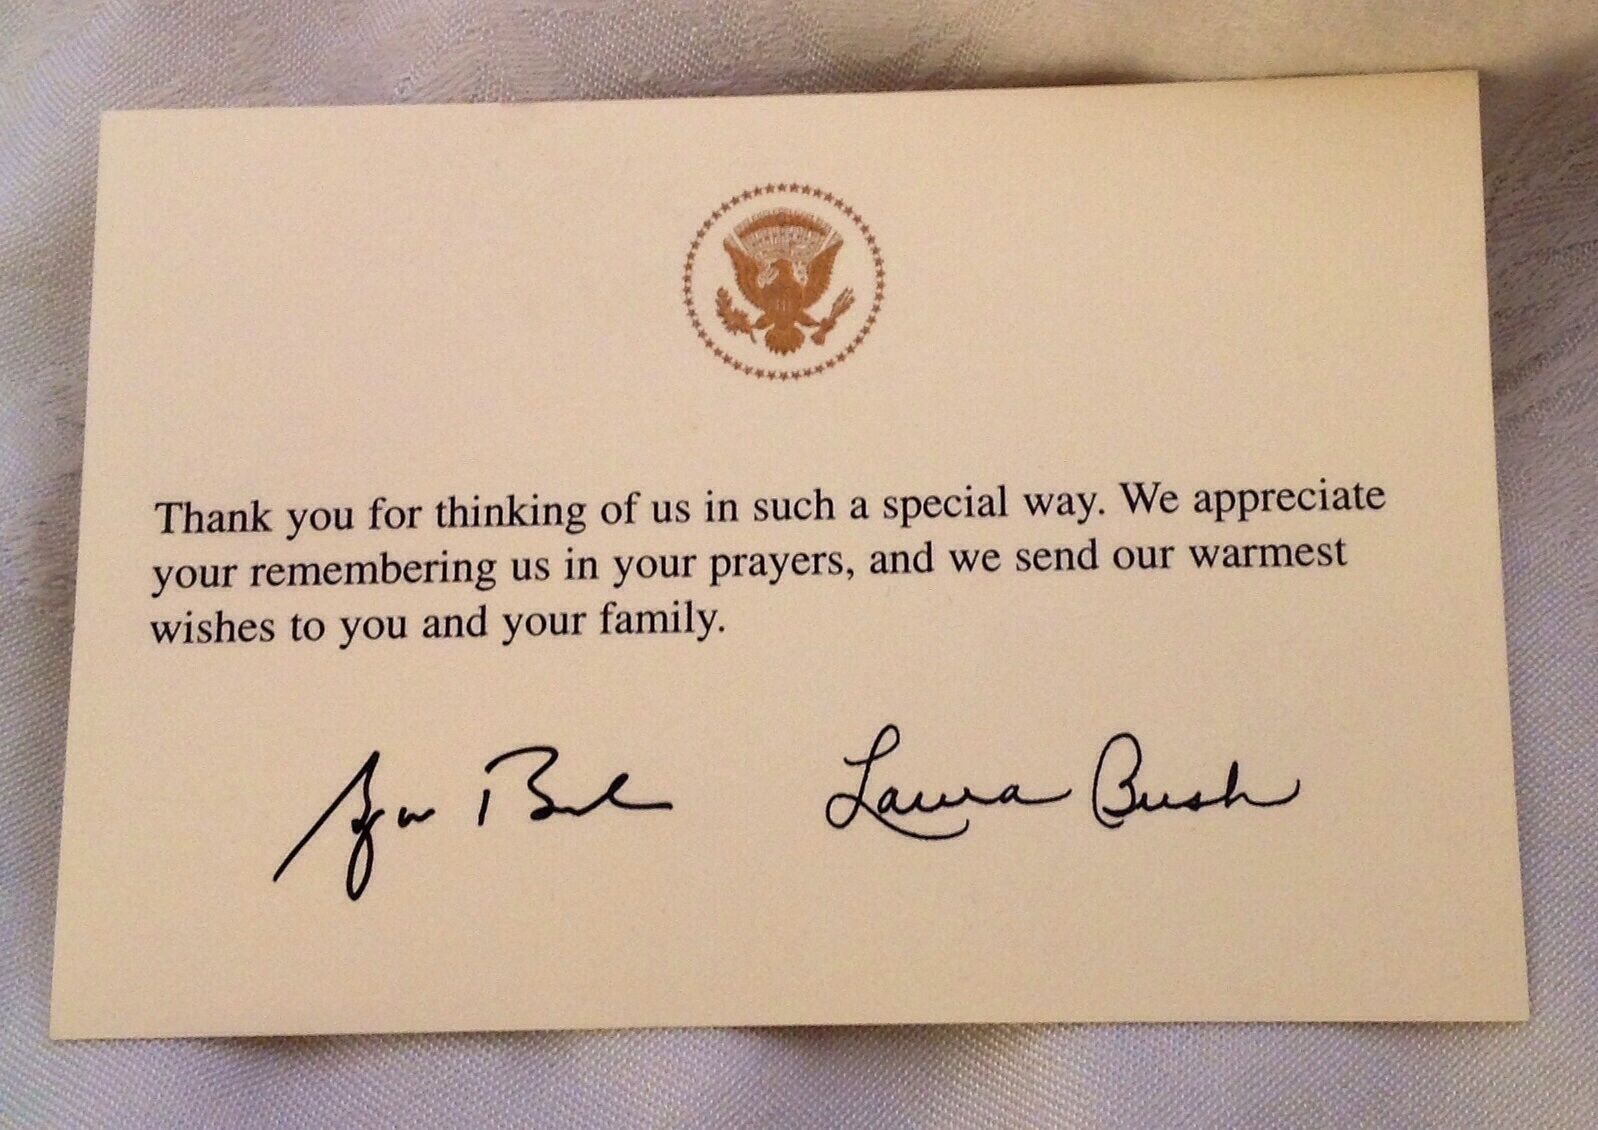 Thank you for thinking of us in such a special way. We appreciate
your remembering us in your prayers, and we send our warmest
wishes to you and your family.
Laura Bush